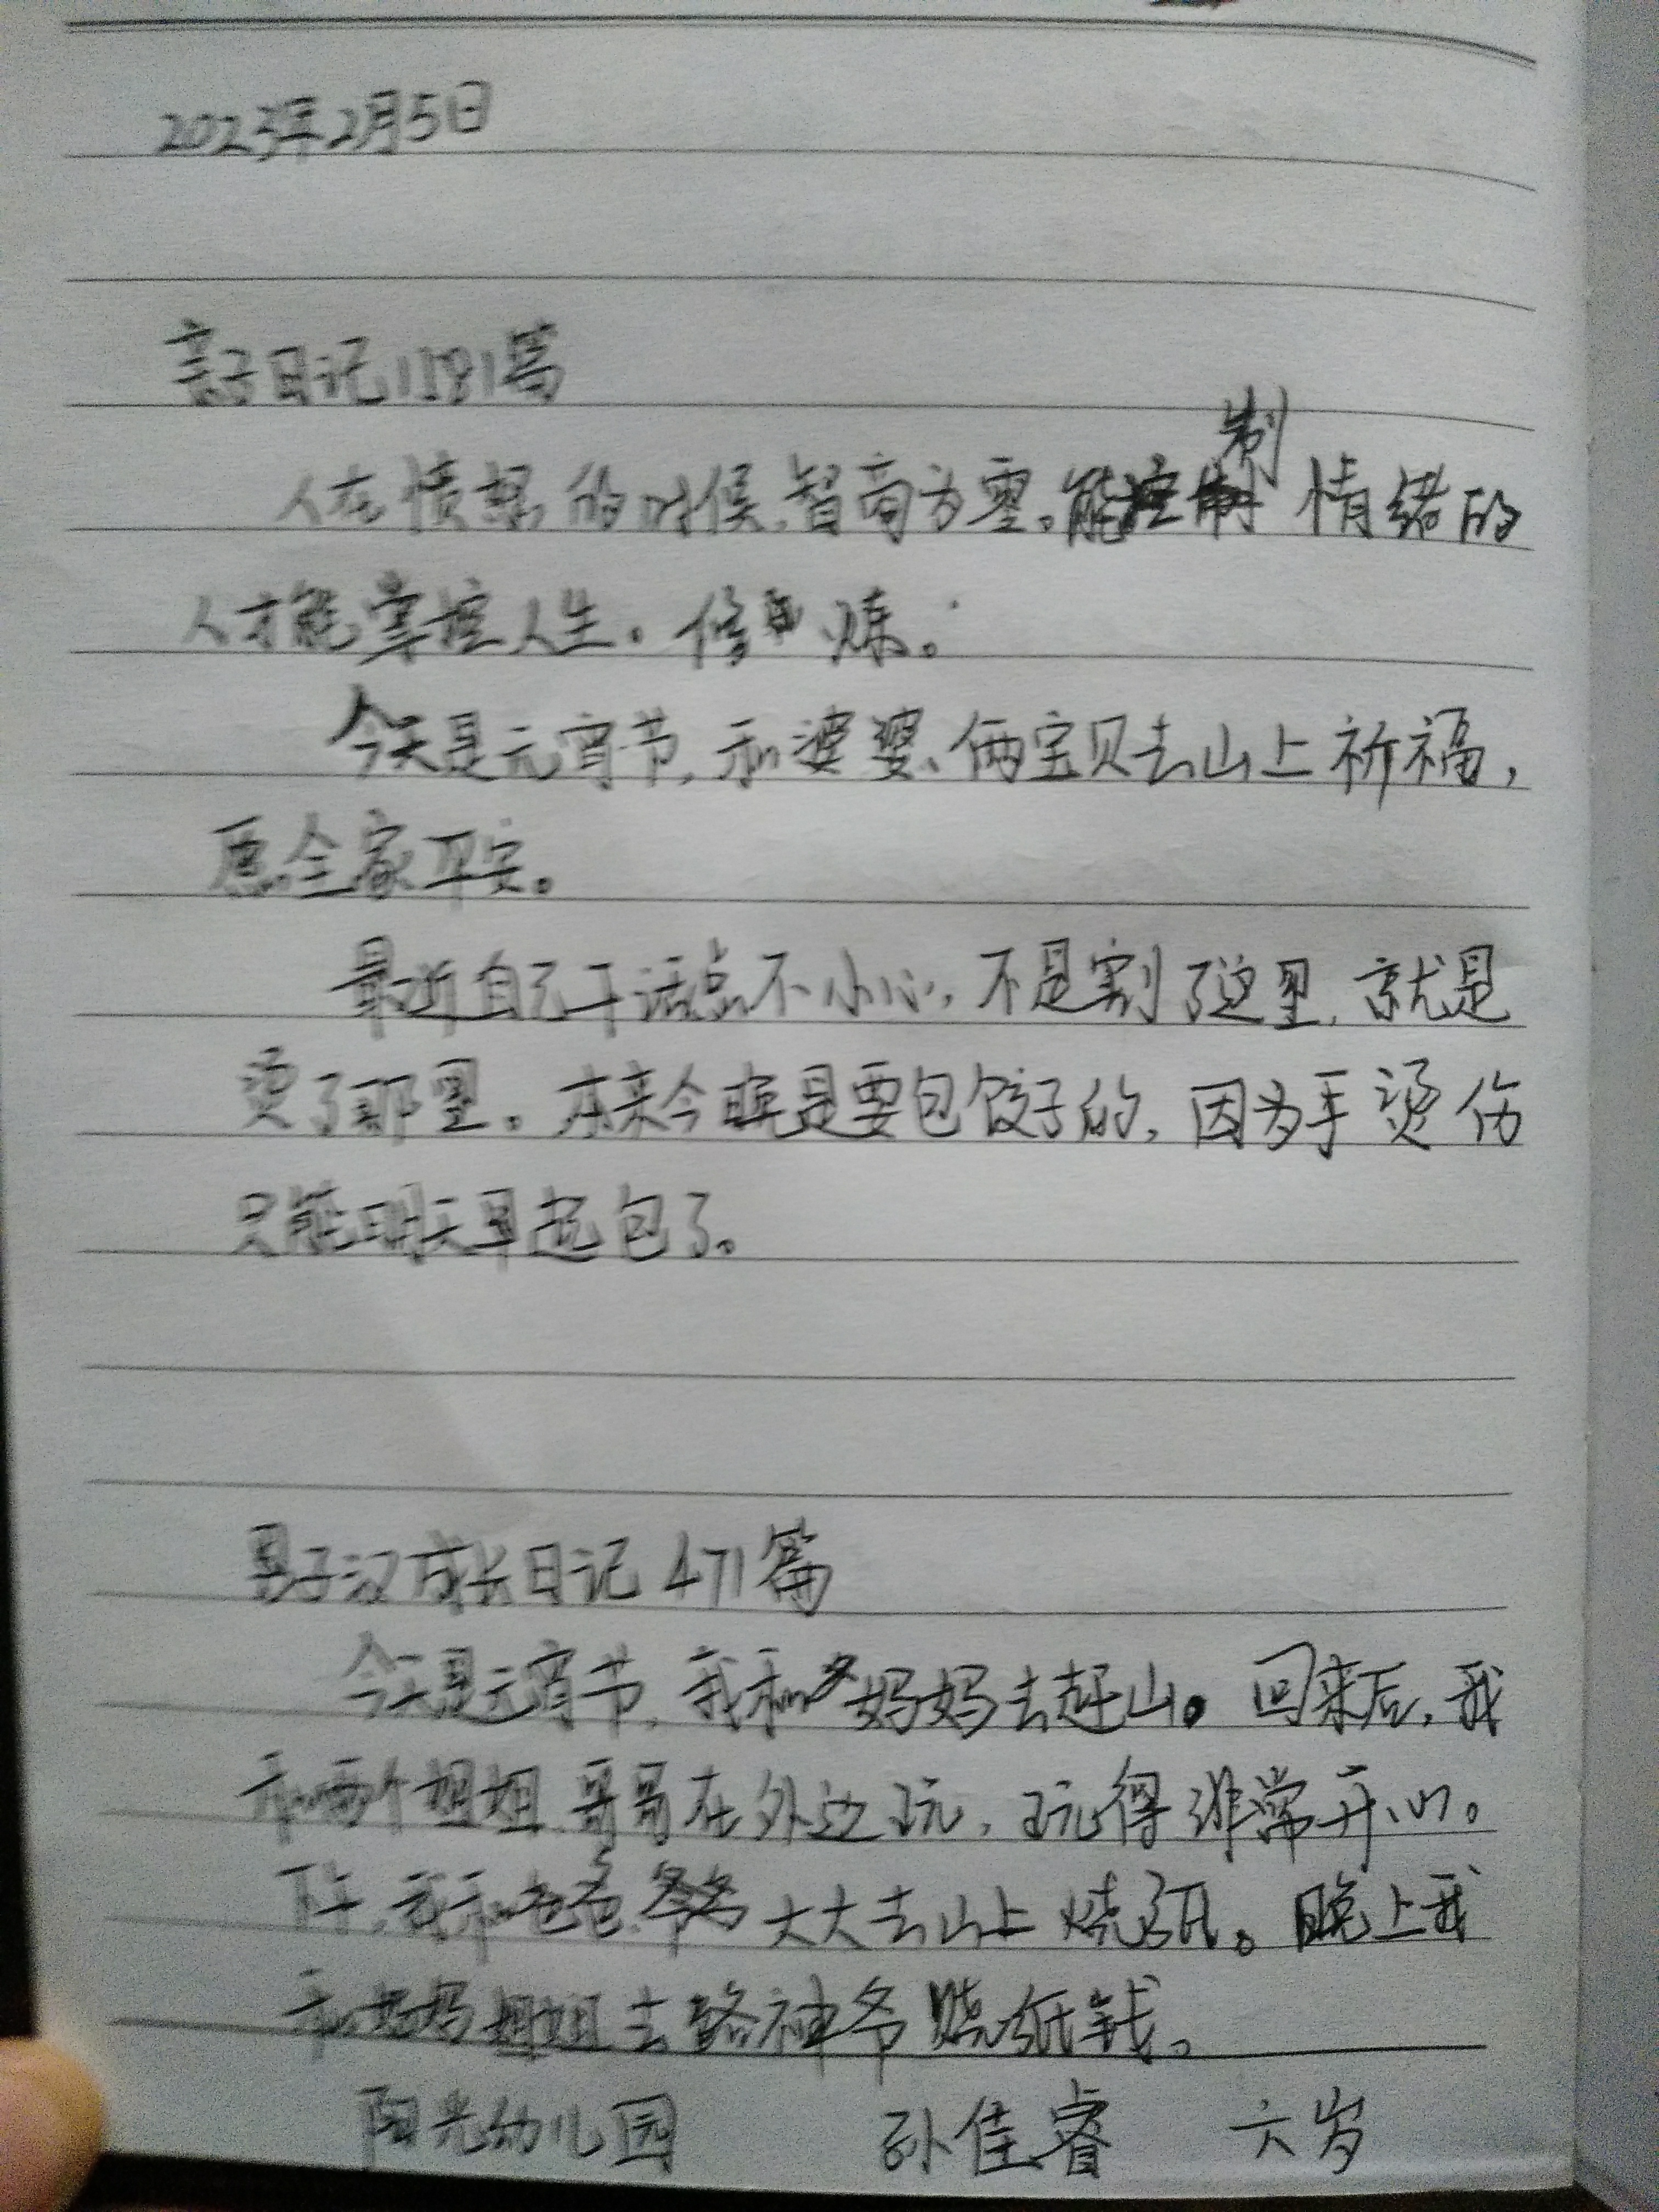 2023年2月5日
亲子日记1181篇
制
人在愤怒的时候,智商为零。能控制情绪的
人才能掌控人生。修炼。
今天是元宵节,和婆婆、俩宝贝去山上祈福,
愿全家平安。
最近自己干活总不小心,不是割了这里,就是
烫了那里。本来今晚是要包饺子的,因为手烫伤
只能明天早起包了。
男子汉成长日记471篇
今天是元宵节,我和妈妈去赶山。回来后,我
和两个姐姐哥哥在外边玩,玩得非常开心。
下午,我和爸爸、爷爷大大去山上烧纸。晚上我
和妈妈姐姐去路神爷烧纸钱。
阳光幼儿园 孙佳睿 六岁